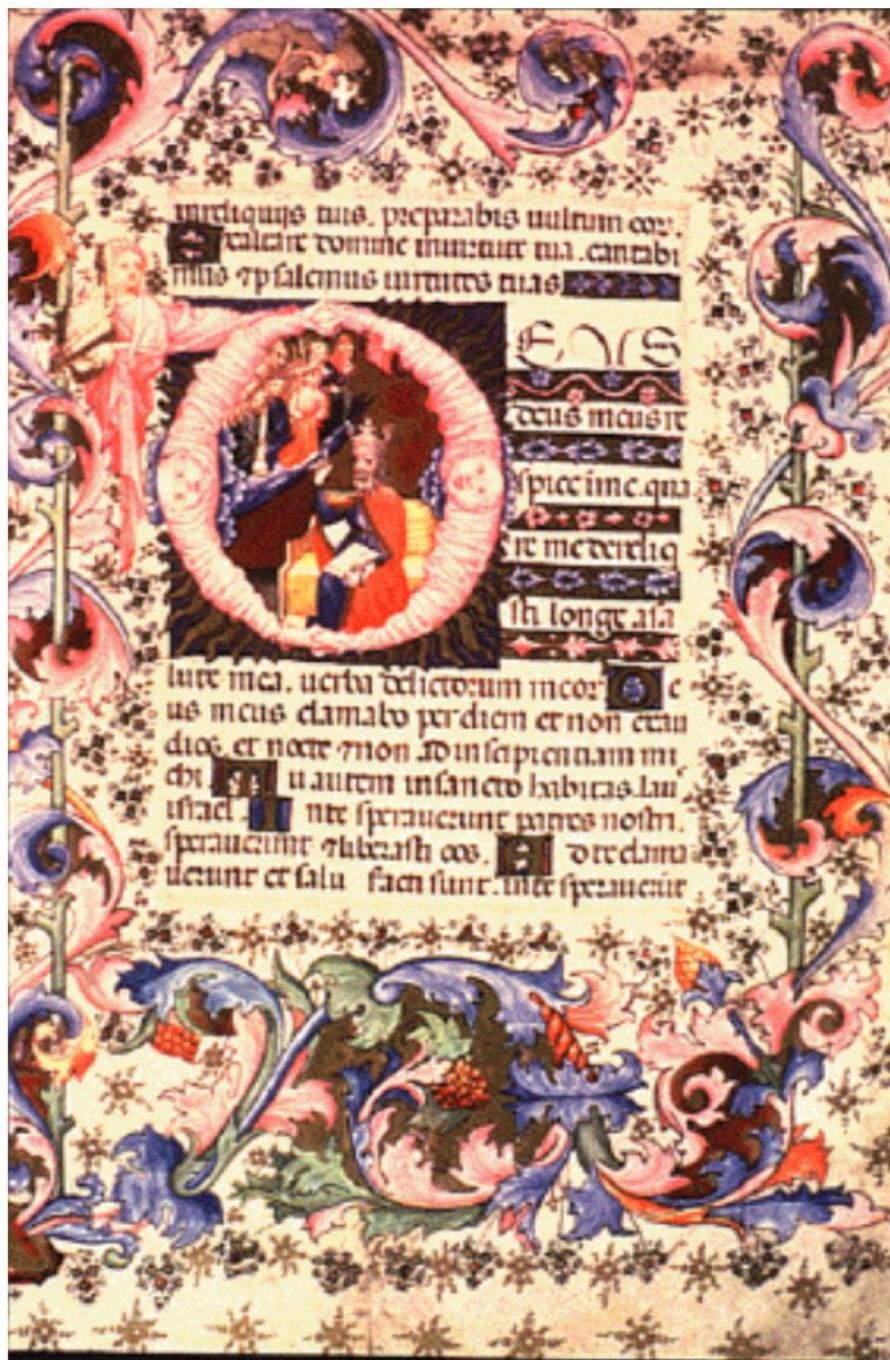 inreliquijs tuis. preparabis uultum eor.
Exaltare domine inuirtute tua. cantabi
mus ⁊ psalemus uirtutes tuas
DEUS
deus meus re
spice in me. qua
re me dereliq
sti. longe asa
lute mea. uerba delictorum meor
De
us meus clamabo per diem et non exau
dies et nocte ⁊ non ad insipientiam mi
chi. Tu autem in sancto habitas. lau
israel. In te sperauerunt patres nostri.
sperauerunt ⁊ liberasti eos. Ad te clama
uerunt et salui facti sunt. in te sperauerūt